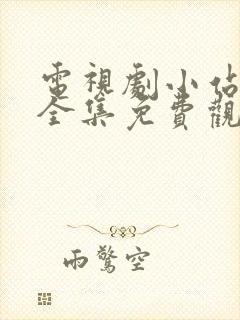 電視劇小佔
全集免費觀
雨驚空